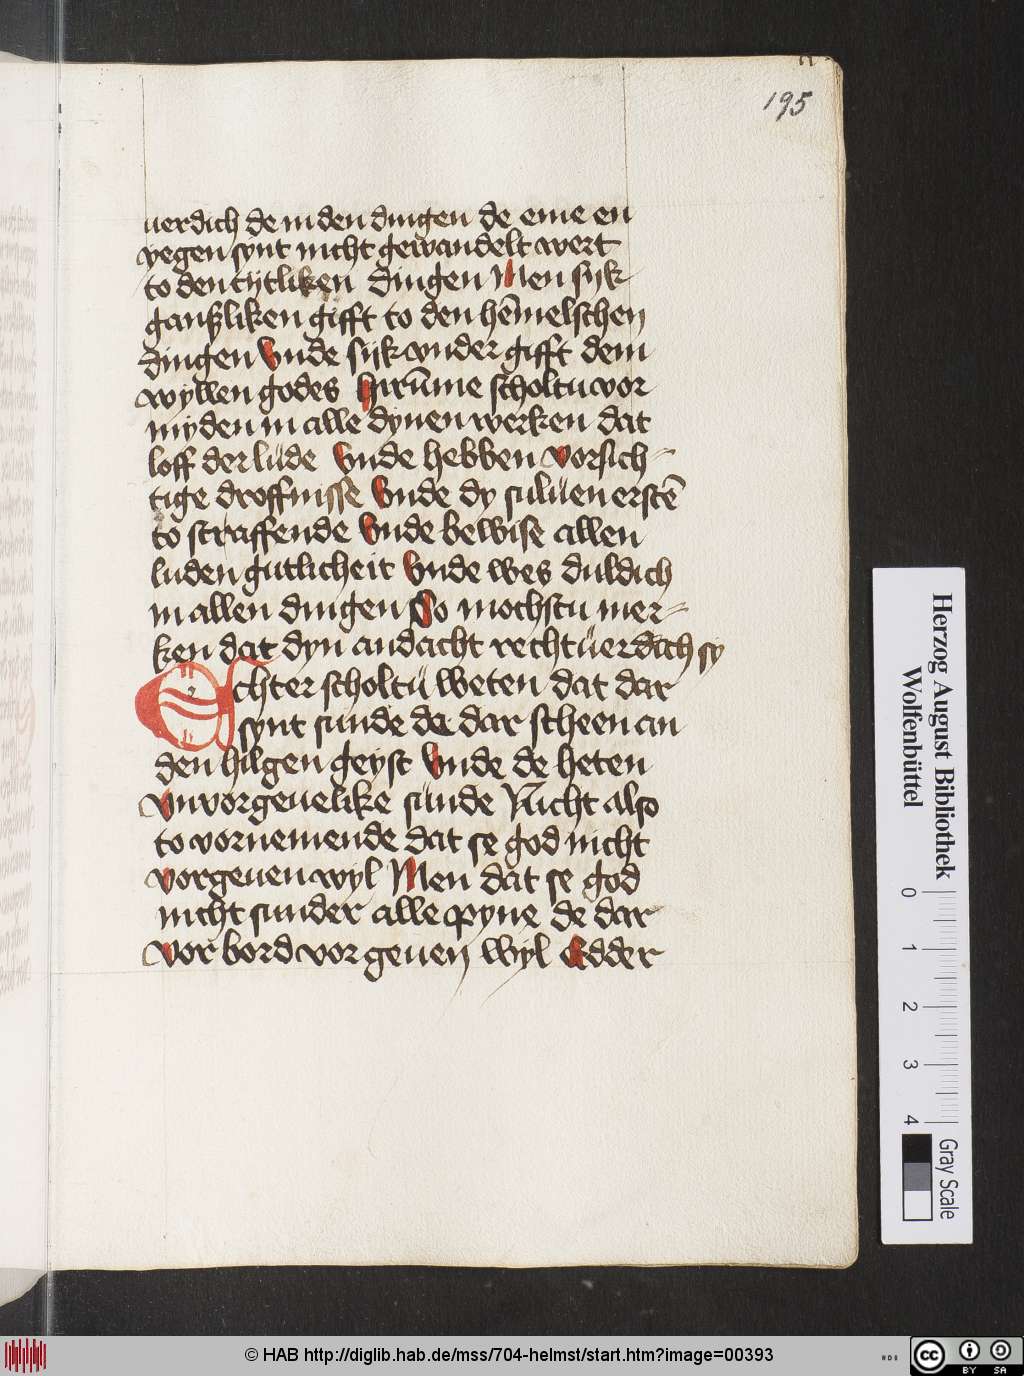 195
uerdich de in den dingen de eme en
yegen synt nicht gewandelt wert
to den tijtliken dingen Men sijk
gantzliken gifft to den hēmelschen
dingen Vnde sijk vnder gifft dem
wyllen godes hirūme scholtu vor
myden in alle dynen werken dat
loff der lude Vnde hebben vorsich=
tige droffnisse Vnde dy suluen erstē
to straffende Vnde bewise allen
luden gutlicheit Vnde wes duldich
in allen dingen So mochstu mer=
ken dat dyn andacht rechtuerdich sy
Echter scholtu weten dat dar
synt sunde de dar scheen an
den hilgen geyst Vnde de heten
vnvorgeuelike sunde Nicht also
to vornemende dat se god nicht
vorgeuen wyl Men dat se god
nicht sunder alle pyne de dar
vor bord vorgeuen wyl Edder
Herzog August Bibliothek
Wolfenbüttel
0 1 2 3 4
Gray Scale
© HAB http://diglib.hab.de/mss/704-helmst/start.htm?image=00393
cc BY SA